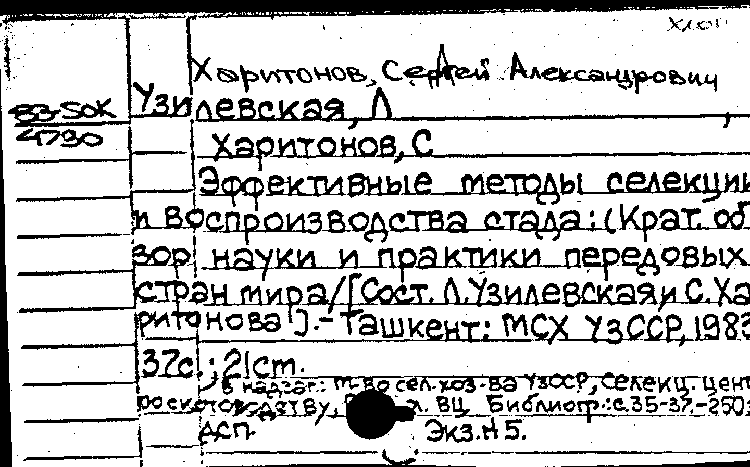 Хлоп
Харитонов, Сергей Александрович
83-5ОК Узилевская, Л ,
4790
Харитонов, С
Эффективные методы селекции
и воспроизводства стада: (Крат. об
зор науки и практики передовых
стран мира/[Сост. Л.Узилевская и С.Ха
ритонова]. - Ташкент: МСХ УзССР, 1983
37с.; 21см.
В надзаг.: М-во сел. хоз-ва УзССР, Селекц. цент
по скотоводству, ВЦ Библиогр.: с.35-37.-250э
ДСП. Экз.N 5.